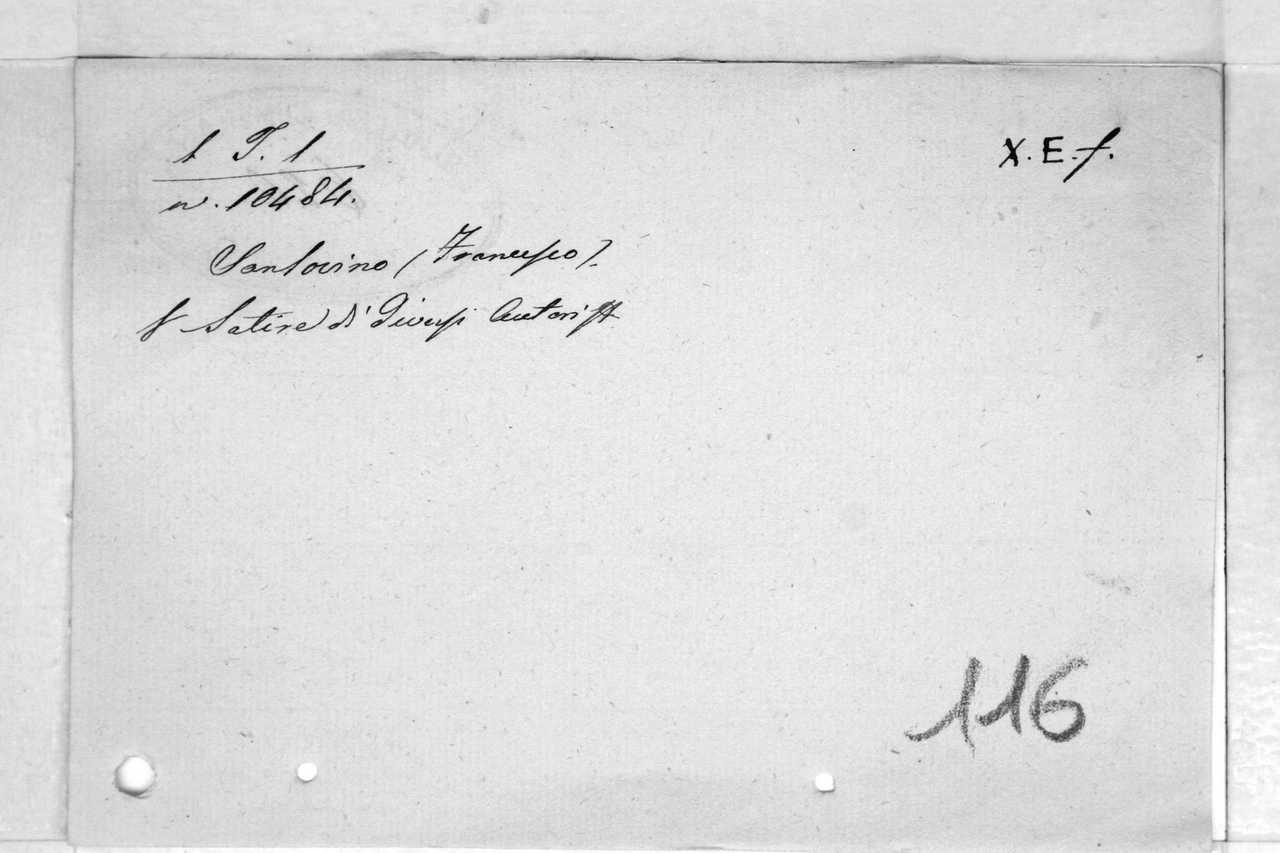 1 T. 1
X. E. f.
n. 10484.
Sansovino (Francesco).
Satire di Diversi Autori
116